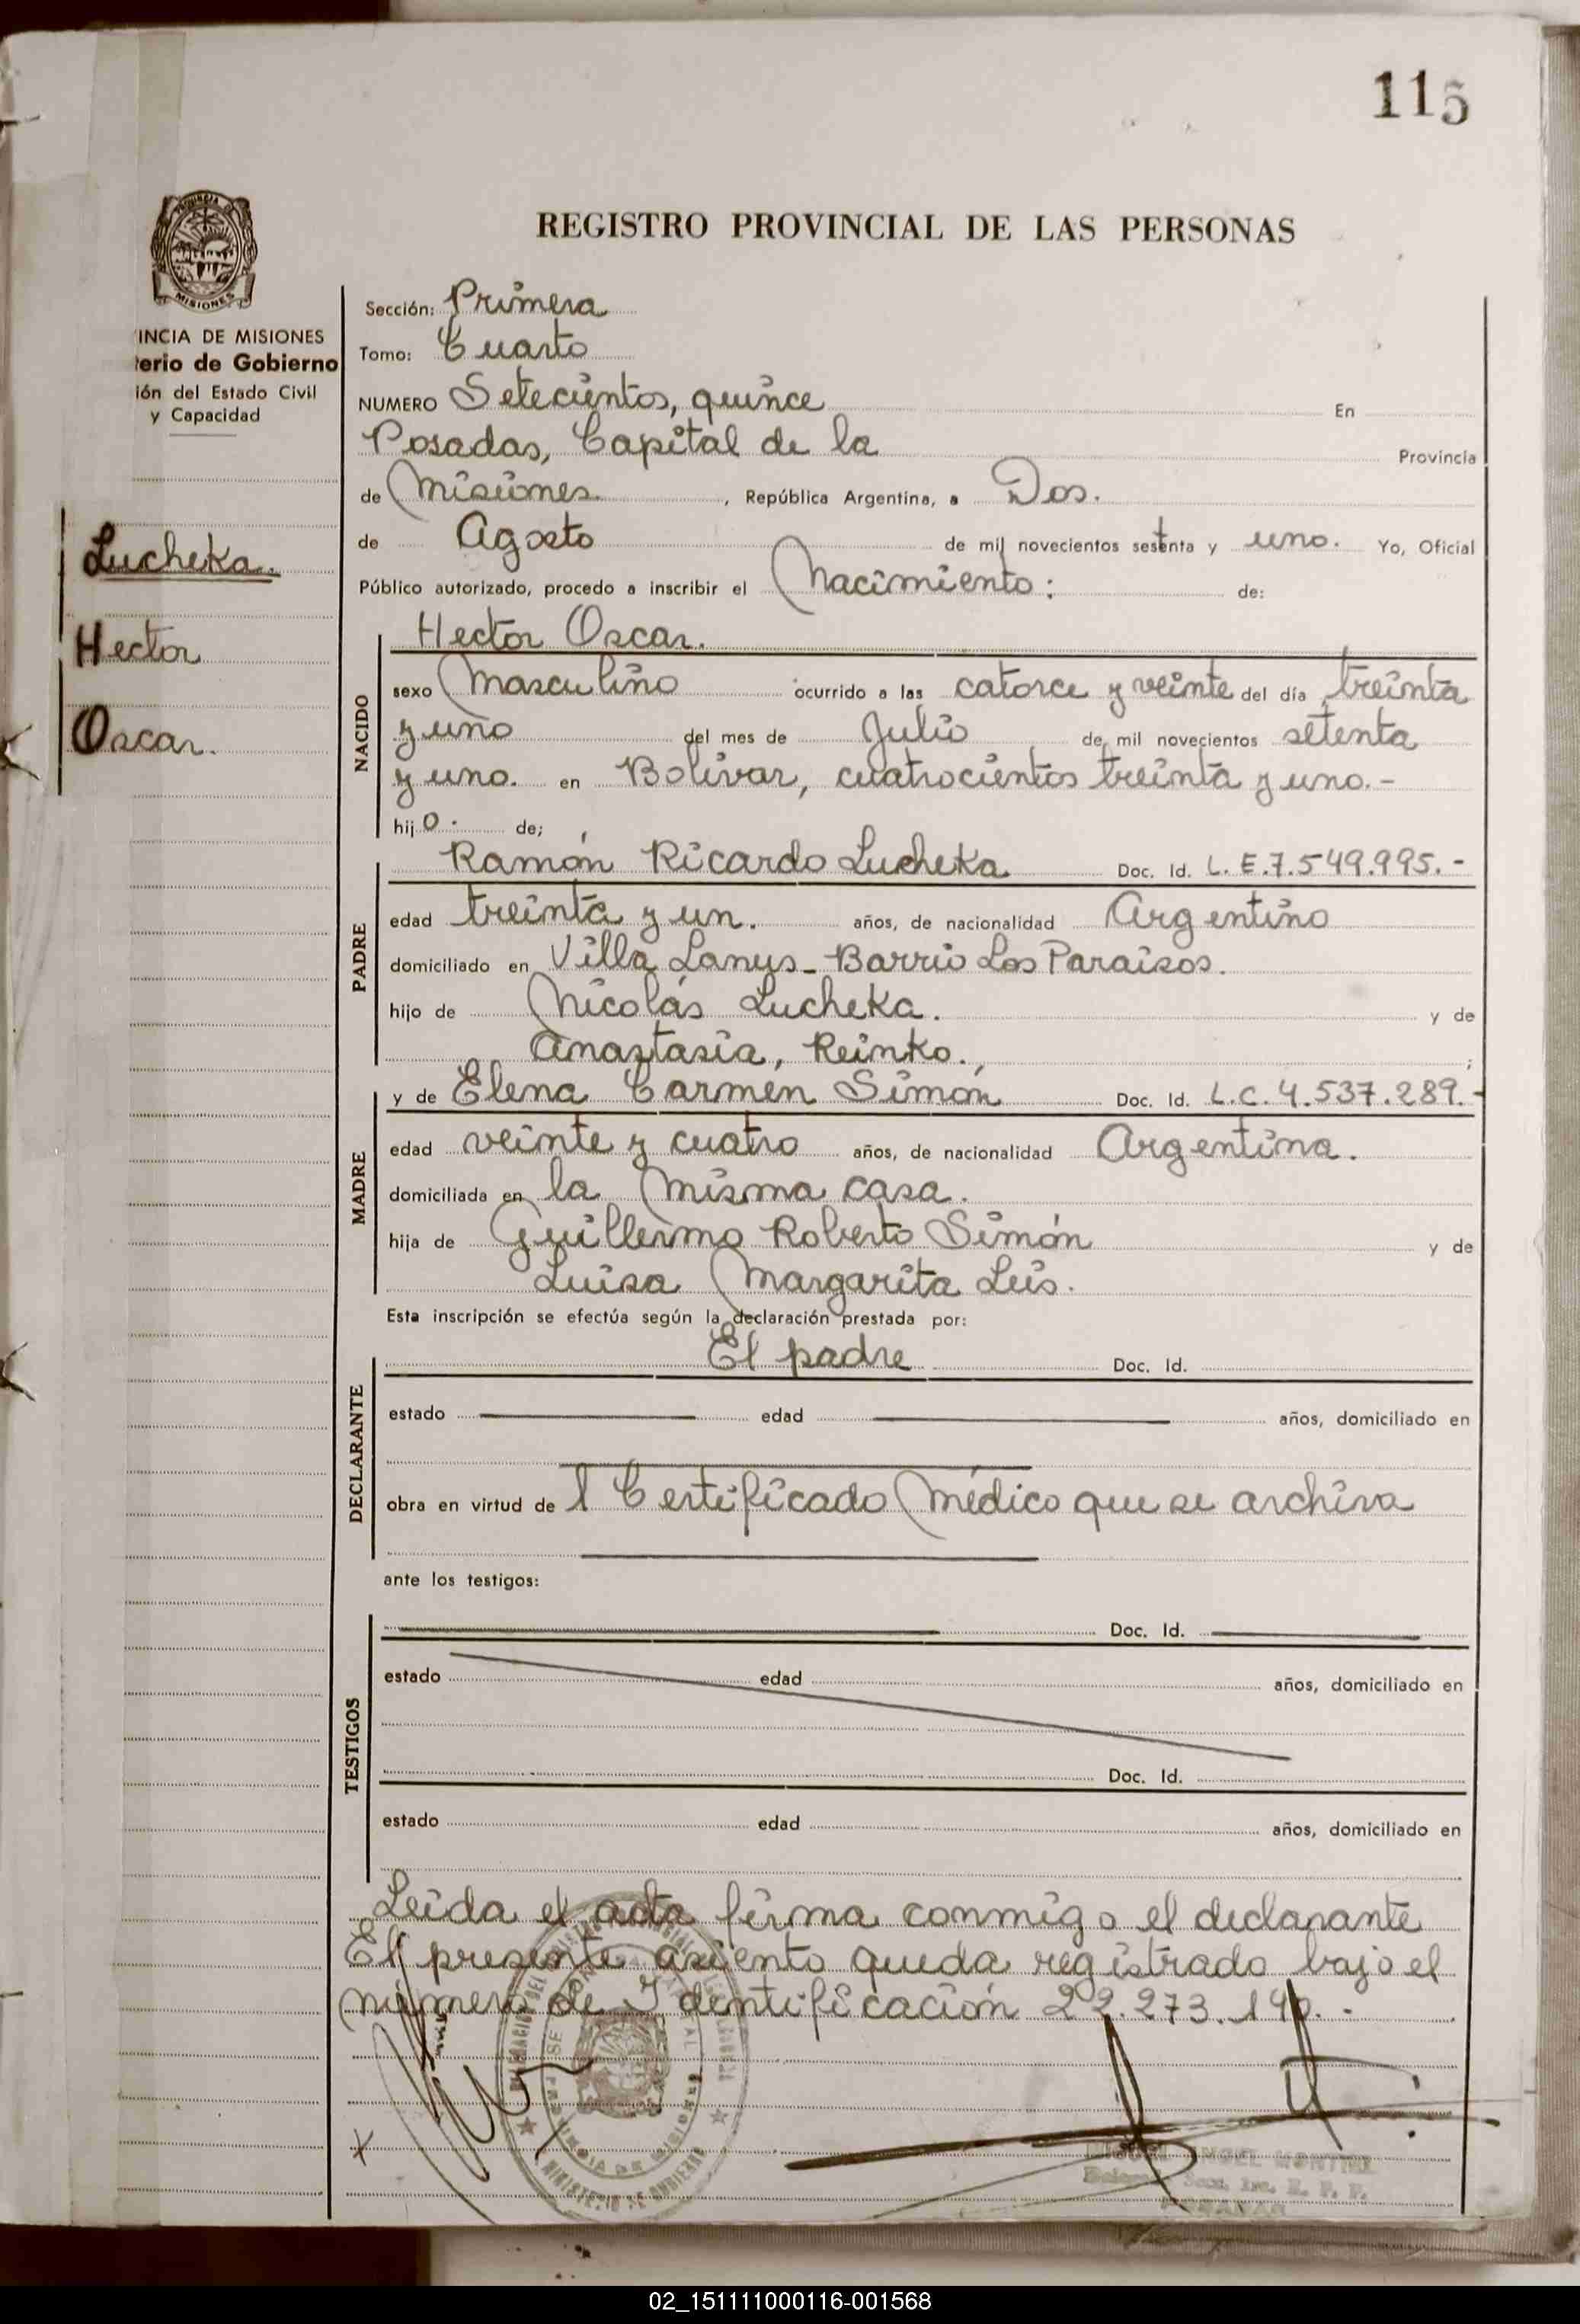 115
REGISTRO PROVINCIAL DE LAS PERSONAS
PROVINCIA DE
MISIONES
INCIA DE MISIONES
erio de Gobierno
ión del Estado Civil
y Capacidad
Lucheka.
Hector
Oscar.
Sección: Primera
Tomo: Cuarto
NUMERO Setecientos, quince En
Posadas, Capital de la Provincia
de Misiones. , República Argentina, a Dos.
de Agosto de mil novecientos setenta y uno. Yo, Oficial
Público autorizado, procedo a inscribir el Nacimiento: de:
Hector Oscar.
NACIDO
sexo Masculino ocurrido a las catorce y veinte del día treinta
y uno del mes de Julio de mil novecientos setenta
y uno. en Bolívar, cuatrocientos treinta y uno.-
hijo. de;
PADRE
Ramón Ricardo Lucheka Doc. Id. L.E.7.549.995.-
edad treinta y un. años, de nacionalidad Argentino
domiciliado en Villa Lanus-Barrio Los Paraisos.
hijo de Nicolás Lucheka. y de
Anastasia, Reinko. ;
MADRE
y de Elena Carmen Simón Doc. Id. L.C.4.537.289.-
edad veinte y cuatro años, de nacionalidad Argentina.
domiciliada en la misma casa.
hija de Guillermo Roberto Simón y de
Luisa Margarita Leis.
Esta inscripción se efectúa según la declaración prestada por:
DECLARANTE
El padre Doc. Id.
estado edad años, domiciliado en
obra en virtud de 1 Certificado Médico que se archiva
ante los testigos:
TESTIGOS
Doc. Id.
estado edad años, domiciliado en
Doc. Id.
estado edad años, domiciliado en
Leida el acta firma conmigo el declarante
El presente asiento queda registrado bajo el
número de Identificación 22.273.190.-
MINISTERIO DE GOBIERNO
ANGEL
POSADAS
02_151111000116-001568